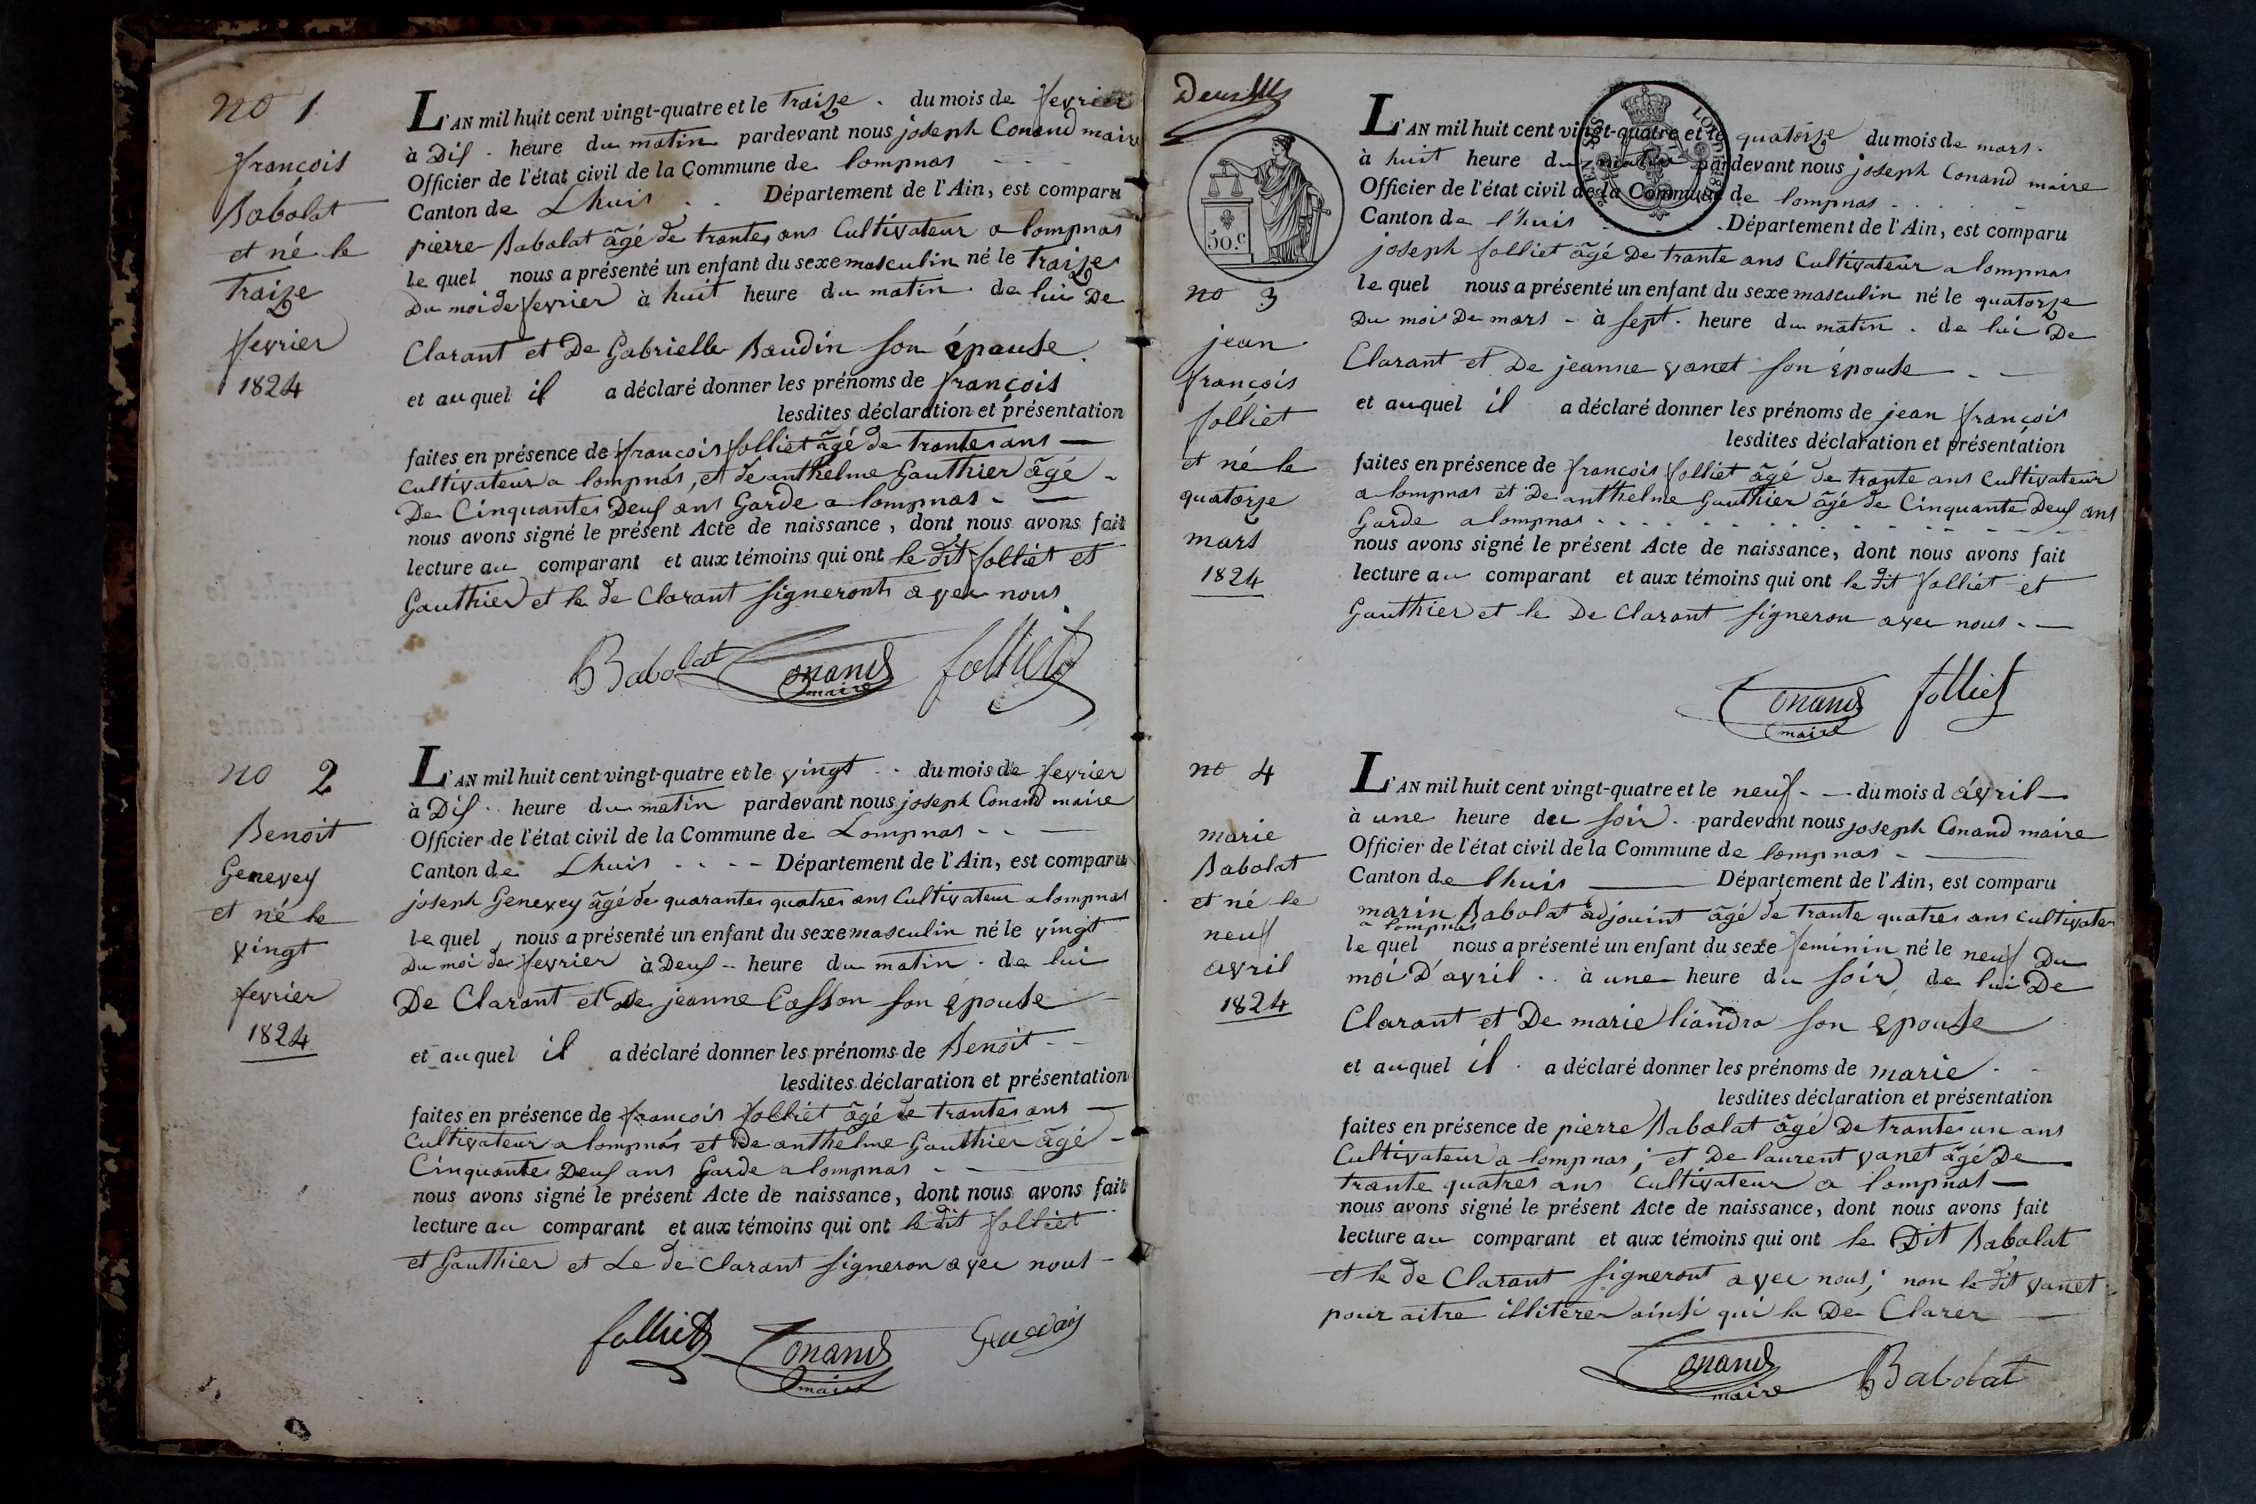 no 1
françois
Babolat
et né le
traize
fevrier
1824
L'AN mil huit cent vingt-quatre et le traize . du mois de fevrier
à Dix . heure du matin pardevant nous joseph Conand maire
Officier de l'état civil de la Commune de lompnas
Canton de Lhuis . . Département de l'Ain, est comparu
pierre Babolat âgé de trantes ans Cultivateur a lompnas
le quel nous a présenté un enfant du sexe masculin né le traize
Du moi de fevrier à huit heure du matin . de lui De
Clarant et De Gabrielle Baudin son épouse .
et au quel il a déclaré donner les prénoms de françois
lesdites déclaration et présentation
faites en présence de francois folliet âgé de trantes ans —
Cultivateur a lompnas, et de anthelme Gauthier âgé -
De Cinquantes Deux ans Garde a lompnas - —
nous avons signé le présent Acte de naissance, dont nous avons fait
lecture au comparant et aux témoins qui ont le dit folliet et
Gauthier et le de Clarant signeront avec nous
Babolat Conand maire folliet
no 2
Benoit
Genevey
et né le
vingt
fevrier
1824
L'AN mil huit cent vingt-quatre et le vingt . . du mois de fevrier
à Dix . . heure du matin pardevant nous joseph Conand maire
Officier de l'état civil de la Commune de Lompnas - - —
Canton de Lhuis . . - - Département de l'Ain, est comparu
joseph Genevey âgé de quarantes quatres ans Cultivateur a lompnas
le quel nous a présenté un enfant du sexe masculin né le vingt
Du moi de fevrier à Deux - - heure du matin . de lui
De Clarant et De jeanne Casson son épouse
et au quel il a déclaré donner les prénoms de Benoit - -
lesdites déclaration et présentation
faites en présence de francois folliet âgé de trantes ans —
Cultivateur a lompnas et De anthelme Gauthier âgé -
Cinquantes Deux ans Garde a lompnas - —
nous avons signé le présent Acte de naissance, dont nous avons fait
lecture au comparant et aux témoins qui ont le dit folliet
et Gauthier et Le de Clarant signeron avec nous -
folliet Conand maire
50.c
no 3
jean
françois
folliet
et né le
quatorze
mars
1824
L'AN mil huit cent vingt-quatre et le quatorze du mois de mars .
à huit heure du matin pardevant nous joseph Conand maire
Officier de l'état civil de la Commune de lompnas
Canton de l'huis Département de l'Ain, est comparu
joseph folliet âgé De trante ans Cultivateur a lompnas
le quel nous a présenté un enfant du sexe masculin né le quatorze
Du mois De mars - à sept . heure du matin . de lui De
Clarant et De jeanne vanet son épouse - —
et au quel il a déclaré donner les prénoms de jean françois
lesdites déclaration et présentation
faites en présence de francois folliet âgé de trante ans Cultivateur
a lompnas et De anthelme Gauthier âgé de Cinquante Deux ans
Garde a lompnas
nous avons signé le présent Acte de naissance, dont nous avons fait
lecture au comparant et aux témoins qui ont le dit folliet et
Gauthier et le De Clarant signeron avec nous - —
Conand maire folliet
no 4
marie
Babolat
et né le
neuf
avril
1824
L'AN mil huit cent vingt-quatre et le neuf - — du mois d avril —
à une heure du soir . pardevant nous joseph Conand maire
Officier de l'état civil de la Commune de lompnas - —
Canton de lhuis — Département de l'Ain, est comparu
marin Babolat adjouint âgé de trante quatres ans cultivateur
a lompnas
le quel nous a présenté un enfant du sexe feminin né le neuf Du
moi D'avril . . à une heure du soir de lui De
Clarant et De marie liandra son epouse
et au quel il . a déclaré donner les prénoms de marie . -
lesdites déclaration et présentation
faites en présence de pierre Babolat âgé De trantes un ans
Cultivateur a lompnas ; et De laurent vanet âgé De
trante quatres ans Cultivateur a lompnas —
nous avons signé le présent Acte de naissance, dont nous avons fait
lecture au comparant et aux témoins qui ont le Dit Babolat
et le de Clarant signeront avec nous ; non le dit vanet
pour aitre illiterer ainsi qui la De Clarer —
Conand maire Babolat